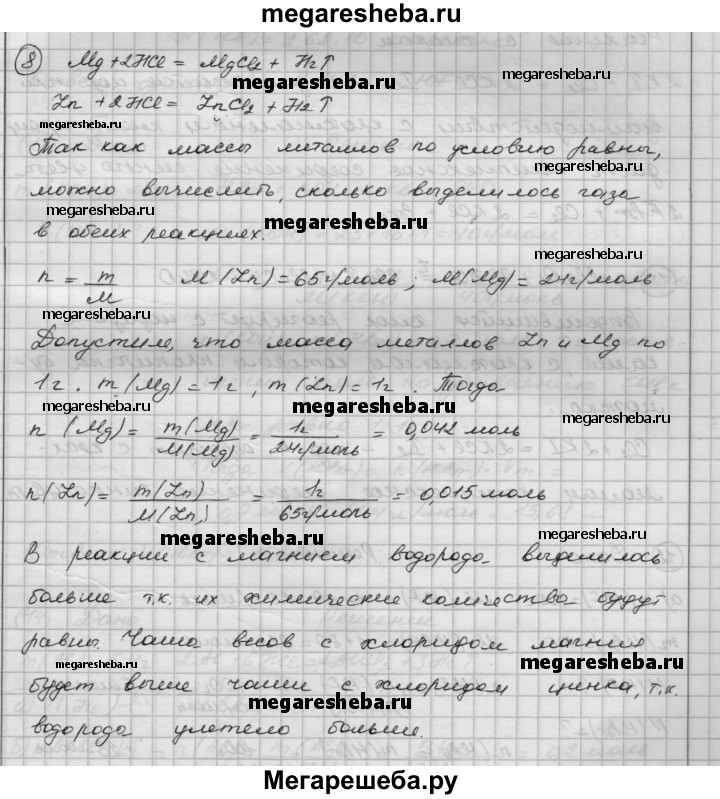 megaresheba.ru
8 Mg + 2HCl = MgCl2 + H2↑
megaresheba.ru
Zn + 2HCl = ZnCl2 + H2↑
megaresheba.ru
Так как массы металлов по условию равны,
megaresheba.ru
можно вычислить, сколько выделилось газа
megaresheba.ru megaresheba.ru
в обеих реакциях.
megaresheba.ru
n = m/M M(Zn) = 65 г/моль; M(Mg) = 24 г/моль
megaresheba.ru megaresheba.ru
Допустим, что масса металлов Zn и Mg по
megaresheba.ru megaresheba.ru
1г. m(Mg) = 1г, m(Zn) = 1г. Тогда
megaresheba.ru megaresheba.ru megaresheba.ru
n(Mg) = m(Mg)/M(Mg) = 1г/24г/моль = 0,042 моль
megaresheba.ru
n(Zn) = m(Zn)/M(Zn) = 1г/65г/моль = 0,015 моль
megaresheba.ru megaresheba.ru
В реакции с магнием водорода выделилось
megaresheba.ru
больше т.к. их химические количества будут
равны. Чаша весов с хлоридом магния
megaresheba.ru megaresheba.ru
будет выше чаши с хлоридом цинка, т.к.
megaresheba.ru
водорода улетело больше.
Мегарешеба.ру